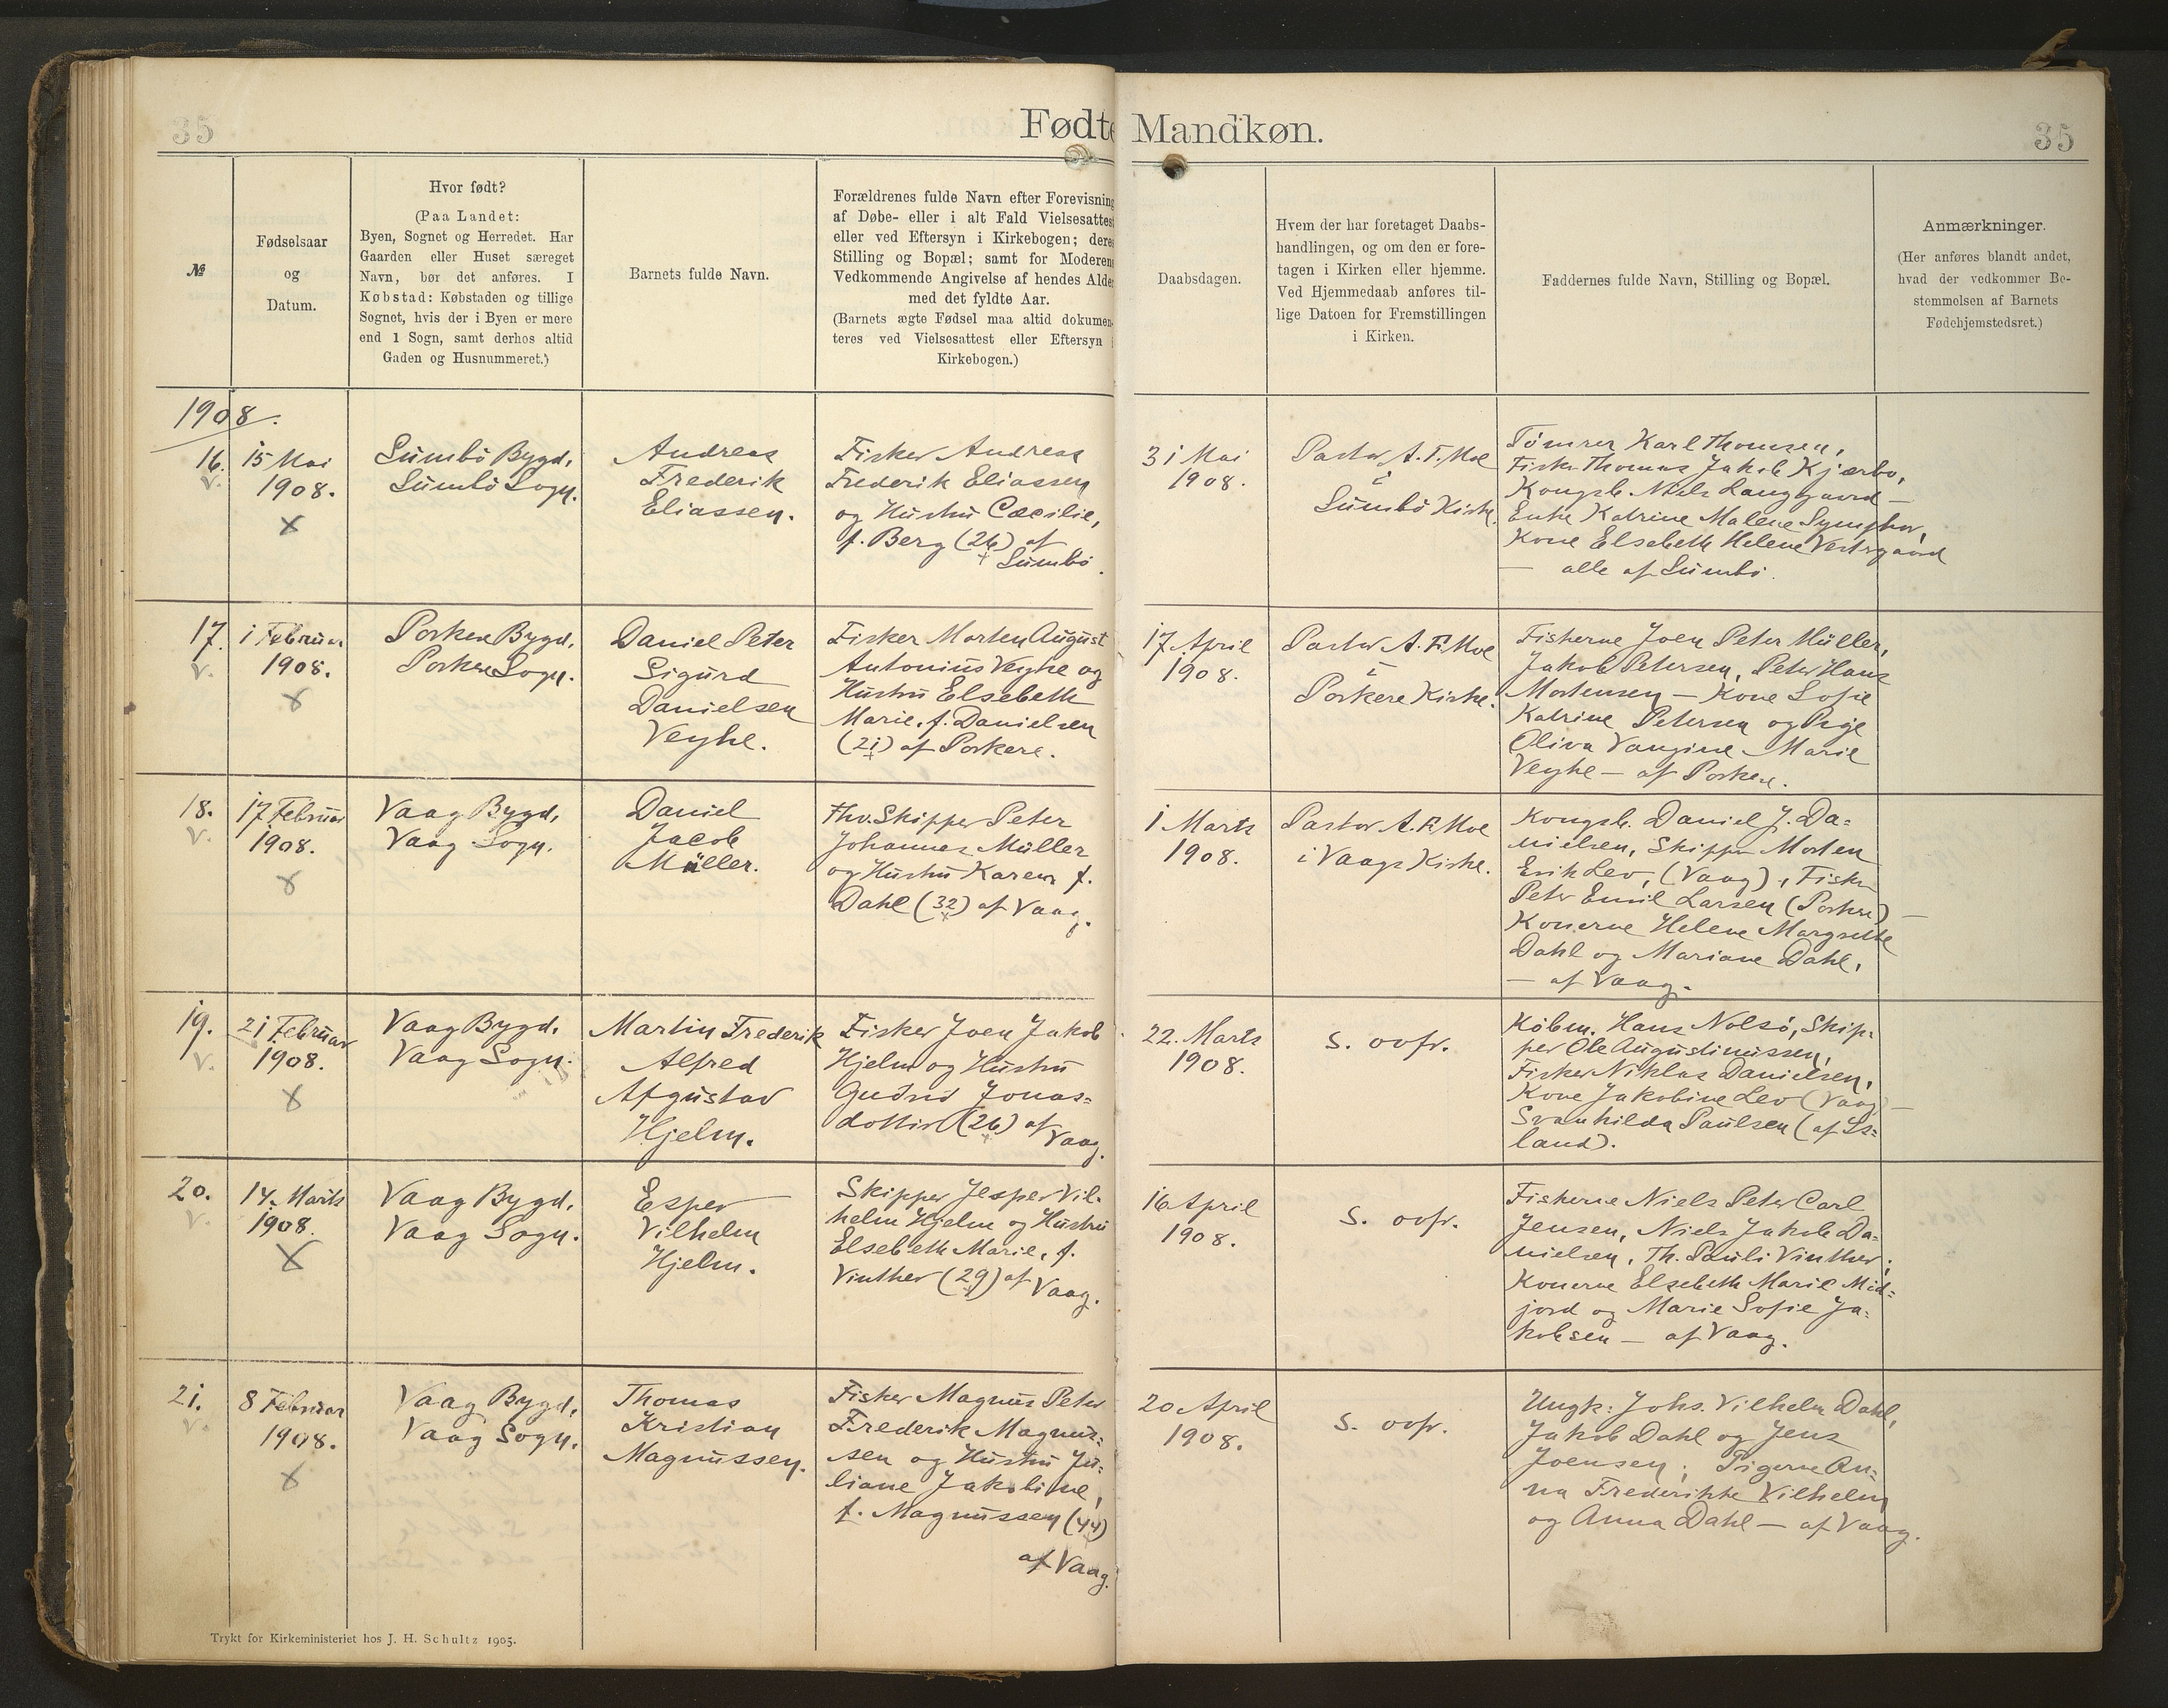 35
Fødte Mandkøn.
35
№
Fødselsaar
og
Datum.
Hvor født?
(Paa Landet:
Byen, Sognet og Herredet. Har
Gaarden eller Huset særeget
Navn, bør det anføres. I
Købstad: Købstaden og tillige
Sognet, hvis der i Byen er mere
end 1 Sogn, samt derhos altid
Gaden og Husnummeret.)
Barnets fulde Navn.
Forældrenes fulde Navn efter Forevisning
af Døbe- eller i alt Fald Vielsesattest
eller ved Eftersyn i Kirkebogen; deres
Stilling og Bopæl; samt for Moderens
Vedkommende Angivelse af hendes Alder
med det fyldte Aar.
(Barnets ægte Fødsel maa altid dokumen-
teres ved Vielsesattest eller Eftersyn i
Kirkebogen.)
Daabsdagen.
Hvem der har foretaget Daabs-
handlingen, og om den er fore-
tagen i Kirken eller hjemme.
Ved Hjemmedaab anføres til-
lige Datoen for Fremstillingen
i Kirken.
Faddernes fulde Navn, Stilling og Bopæl.
Anmærkninger.
(Her anføres blandt andet,
hvad der vedkommer Be-
stemmelsen af Barnets
Fødehjemstedsret.)
1908.
16.
15 Mai
1908.
Sumbö Bygd,
Sumbö Sogn.
Andreas
Frederik
Eliassen.
Fisker Andreas
Frederik Eliassen
og Hustru Cæcilie,
f. Berg (26) af
Sumbö.
31 Mai
1908.
Pastor A. F. Moe
i
Sumbö Kirke.
Tömrer Karl Thomsen,
Fisker Thomas Jakob Kjærbo,
Kongsb. Niels Langgaard —
Enke Katrine Malene
Kone Elsebeth Helene Vestergaard
— alle af Sumbö.
17.
1 Februar
1908.
Porkere Bygd,
Porkere Sogn.
Daniel Peter
Sigurd
Danielsen
Veyhe.
Fisker Morten August
Antonius Veyhe og
Hustru Elsebeth
Marie, f. Danielsen
(21) af Porkere.
17 April
1908.
Pastor A. F. Moe
i
Porkere Kirke.
Fiskerne Joen Peter Müller,
Jakob Petersen, Peter Hans
Mortensen — Kone Sofie
Katrine Petersen og Pige
Oliva Vangine Marie
Veyhe — af Porkere.
18.
17 Februar
1908.
Vaag Bygd,
Vaag Sogn.
Daniel
Jacob
Müller.
Fhv. Skipper Peter
Johannes Müller
og Hustru Karen f.
Dahl (32) af Vaag.
1 Marts
1908.
Pastor A. F. Moe
i Vaags Kirke.
Kongsb. Daniel J. Da=
nielsen, Skipper Morten
Erik Lev, (Vaag), Fisker
Peter Emil Larsen (Porkere) —
Konerne Helene Margrethe
Dahl og Mariane Dahl,
— af Vaag.
19.
21 Februar
1908.
Vaag Bygd,
Vaag Sogn.
Martin Frederik
Alfred
Afgustav
Hjelm.
Fisker Joen Jakob
Hjelm og Hustru
Gudrid Jonas=
dottir (26) af
Vaag.
22. Marts
1908.
s. ovfr.
Köbm. Hans Nolsö, Skip=
per Ole Augustinussen,
Fisker Niklas Danielsen,
Kone Jakobine Lev (Vaag) —
Svanhilda Paulsen (af Is=
land).
20.
14. Marts
1908.
Vaag Bygd,
Vaag Sogn.
Esper
Vilhelm
Hjelm.
Skipper Jesper Vil=
helm Hjelm og Hustru
Elsebeth Marie, f.
Vinther (29) af Vaag.
16 April
1908.
s. ovfr.
Fiskerne Niels Peter Carl
Jensen, Niels Jakob Da=
nielsen, Th. Pauli Vinther;
Konerne Elsebeth Marie Mid=
jord og Marie Sofie Ja=
kobsen — af Vaag.
21.
8 Februar
1908.
Vaag Bygd,
Vaag Sogn.
Thomas
Kristian
Magnussen.
Fisker Magnus Peter
Frederik Magnus=
sen og Hustru Ju=
liane Jakobine,
f. Magnussen (44)
af Vaag.
20 April
1908.
s. ovfr.
Ungk: Johs. Vilhelm Dahl,
Jakob Dahl og Jens
Joensen; Pigerne An=
na Frederikke Vilhelm
og Anna Dahl — af Vaag.
Trykt for Kirkeministeriet hos J. H. Schultz 1905.